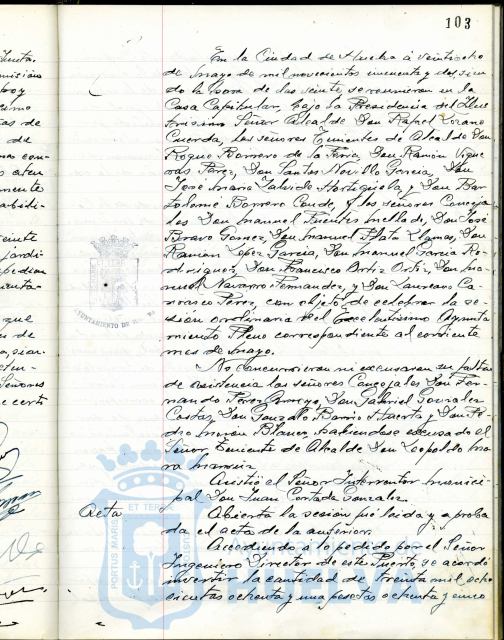 103
En la Ciudad de Huelva á veintiocho
de mayo de mil novecientos cincuenta y dos sien
do la hora de las veinte, se reunieron en la
Casa Capitular, bajo la Presidencia del Ilus
trisimo Señor Alcalde Don Rafael Lozano
Cuerda, los señores Tenientes de Alcalde Don
Roque Borrero de la Feria, Don Ramón Vigue
ras Perez, Don Santos Novillo Garcia, Don
José Maria Hortiguela, y Don Bar
tolomé Borrero Conde, y los señores Conceja
les Don Manuel Fuentes Mellado, Don José
Bravo Gomez, Don Manuel Plata Llamas, Don
Ramón López Garcia, Don Manuel Garcia Ro
driguez, Don Francisco Ortiz Ortiz, Don Ma
nuel Navarro Fernandez, y Don Laureano Ca
rrasco Perez, con objeto de celebrar la se
sión ordinaria del Excelentisimo Ayunta
miento Pleno correspondiente al corriente
mes de mayo.
No concurrieron ni excusaron su falta
de asistencia los señores Concejales Don Fer
nando Perez Don Gabriel Gonzalez
Don Gonzalo Barrio Huerta y Don Pe
dro Morón Blanco, habiendose excusado el
Señor Teniente de Alcalde Don Leopoldo Mo
ra
Asistió el Señor Interventor Munici
pal Don Juan Cortada Gonzalez.
Acta
Abierta la sesión fué leida y aproba
da el acta de la anterior.
Accediendo a lo pedido por el Señor
Ingeniero Director de este Puerto, se acordó
invertir la cantidad de treinta mil ocho
cientas ochenta y una pesetas ochenta y cinco
PORTUS MARIS ET TERRAE CUSTODIA
AYUNTAMIENTO DE
HUELVA